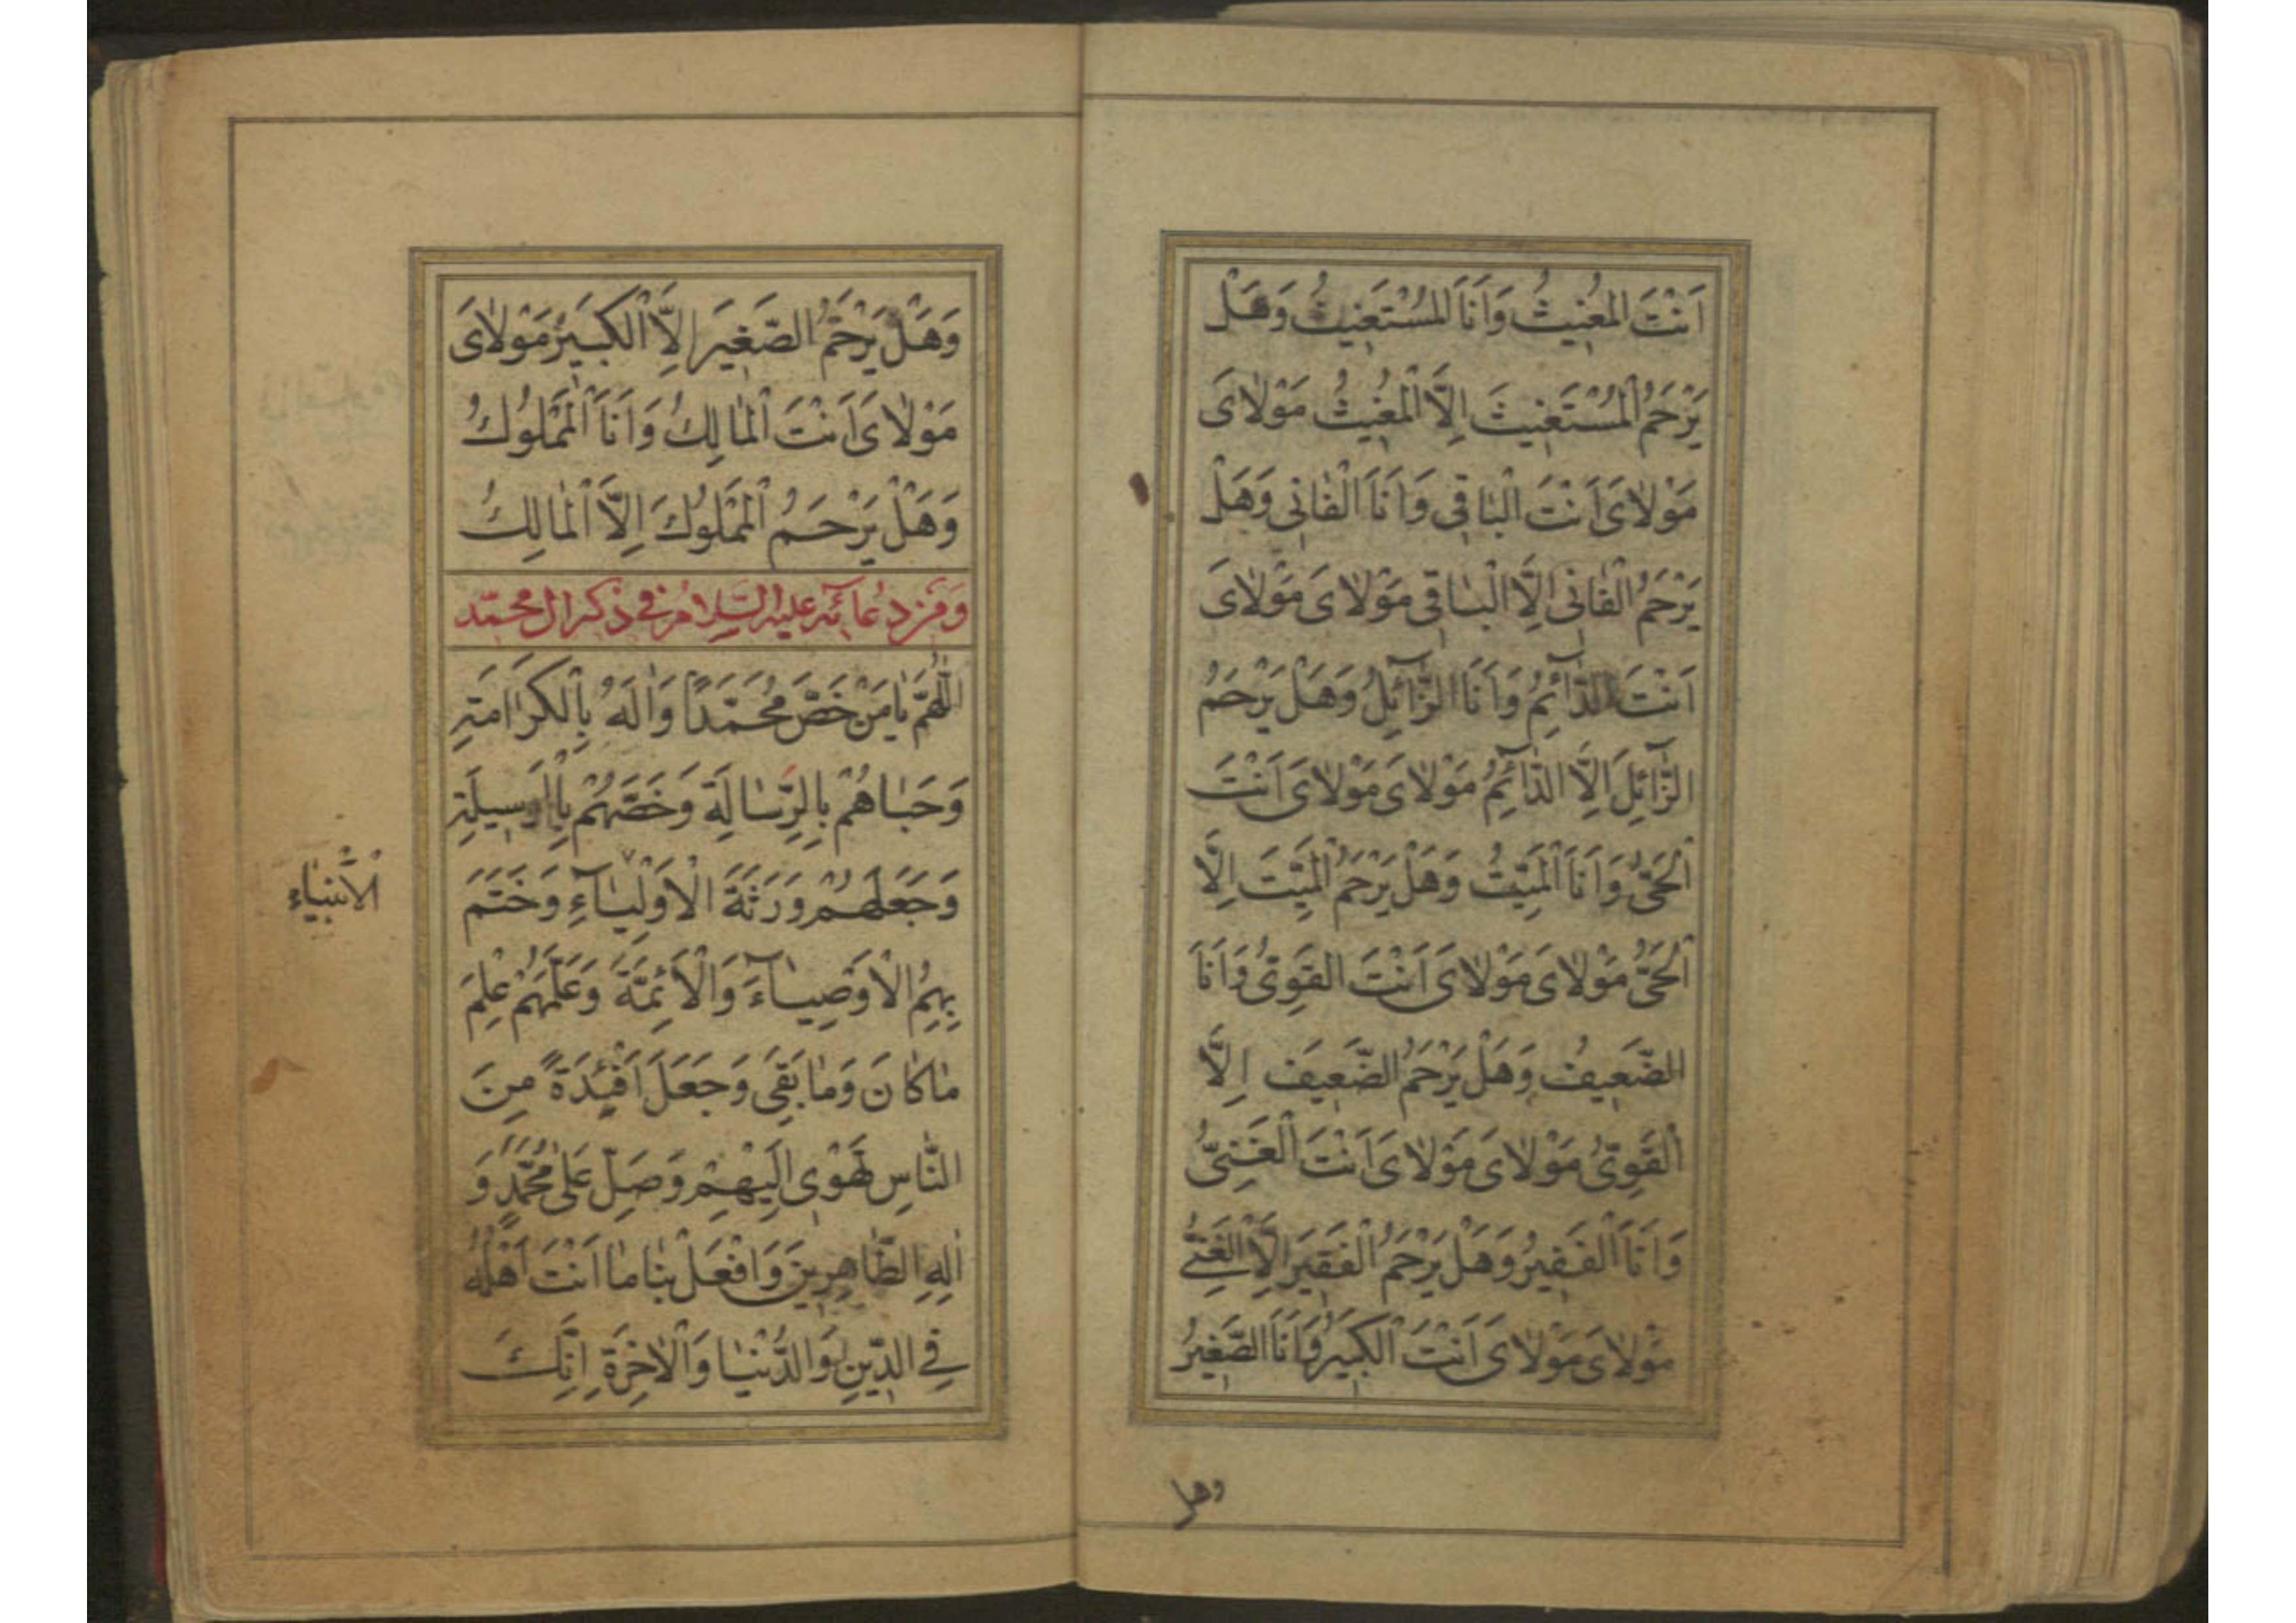 اَنْتَ الْمُغِيثُ وَاَنَا الْمُسْتَغِيثُ وَهَلْ
يَرْحَمُ الْمُسْتَغِيثَ اِلَّا الْمُغِيثُ مَوْلاىَ
مَوْلاىَ اَنْتَ الْباقِى وَاَنَا الْفانِى وَهَلْ
يَرْحَمُ الْفانِىَ اِلَّا الْباقِى مَوْلاىَ مَوْلاىَ
اَنْتَ الدّآئِمُ وَاَنَا الزّآئِلُ وَهَلْ يَرْحَمُ
الزّآئِلَ اِلَّا الدّآئِمُ مَوْلاىَ مَوْلاىَ اَنْتَ
الْحَىُّ وَاَنَا الْمَيِّتُ وَهَلْ يَرْحَمُ الْمَيِّتَ اِلَّا
الْحَىُّ مَوْلاىَ مَوْلاىَ اَنْتَ القَوِىُّ وَاَنَا
الضَّعِيفُ وَهَلْ يَرْحَمُ الضَّعِيفَ اِلَّا
الْقَوِىُّ مَوْلاىَ مَوْلاىَ اَنْتَ الْغَنِىُّ
وَاَنَا الْفَقِيرُ وَهَلْ يَرْحَمُ الْفَقِيرَ اِلَّا الْغَنِىُّ
مَوْلاىَ مَوْلاىَ اَنْتَ الْكَبِيرُ وَاَنَا الصَّغِيرُ
وهل
وَهَلْ يَرْحَمُ الصَّغِيرَ اِلَّا الْكَبِيرُ مَوْلاىَ
مَوْلاىَ اَنْتَ الْمالِكُ وَاَنَا الْمَمْلُوكُ
وَهَلْ يَرْحَمُ الْمَمْلُوكَ اِلَّا الْمالِكُ
وَمِنْ دُعائِهِ عليه السّلام فى ذكر ال محمّد
اَللّهُمَّ يامَنْ خَصَّ مُحَمَّدًا وَالَهُ بِالْكَرامَةِ
وَحَباهُمْ بِالرِّسالَةِ وَخَصَّهُمْ بِالْوَسِيلَةِ
وَجَعَلَهُمْ وَرَثَةَ الْاَوْلِيآءِ وَخَتَمَ
الْاَنْبِياءِ
بِهِمُ الْاَوْصِيآءَ وَالْاَئِمَّةَ وَعَلَّمَهُمْ عِلْمَ
ماكانَ وَمابَقِىَ وَجَعَلَ اَفْئِدَةً مِنَ
النّاسِ تَهْوِى اِلَيْهِمْ وَصَلِّ عَلى مُحَمَّدٍ وَ
الِهِ الطّاهِرِينَ وَافْعَلْ بِنا ما اَنْتَ اَهْلُهُ
فِى الدِّينِ وَالدُّنْيا وَالْاخِرَةِ اِنَّكَ